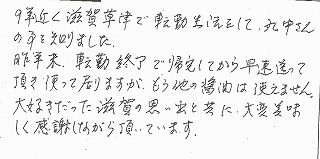 9年近く滋賀草津で転勤生活をして、丸中さん
の事を知りました。
昨年末、転勤終了で帰宅してから早速送って
頂き使って居りますが、もう他の醤油は使えません。
大好きだった滋賀の思い出と共に、大変美味
しく感謝しながら頂いています。